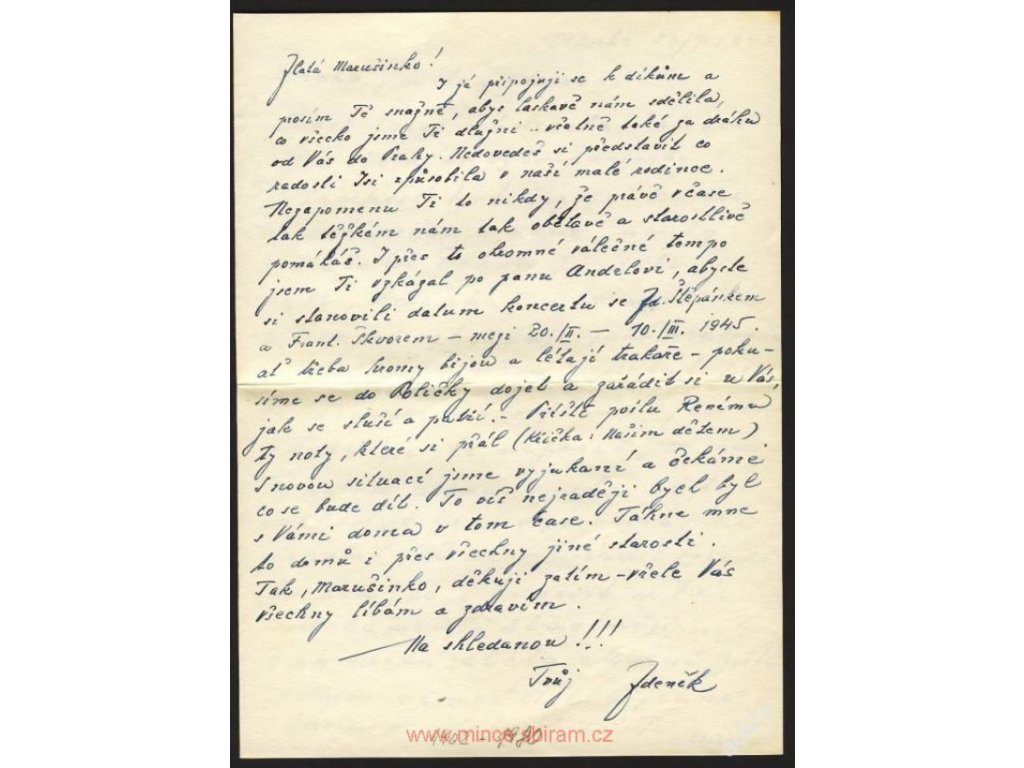 Zlatá Marušinko!
I já připojuji se k díkům a
prosím Tě snažně, abys laskavě nám sdělila,
co všecko jsme Ti dlužni - včetně také za dráhu
od Vás do Prahy. Nedovedeš si představit co
radosti Jsi způsobila v naší malé rodince.
Nezapomenu Ti to nikdy, že právě včase
tak těžkém nám tak obětavě a starostlivě
pomáháš. I přes to ohromné válečné tempo
jsem Ti vzkázal po panu Andrlovi, abyste
si stanovili datum koncertu se Zd. Štěpánkem
a Frant. Škvorem - mezi 20./II. - 10./III. 1945.
ať třeba hromy bijou a létají trakaře - poku-
síme se do Poličky dojet a zařádit si u Vás,
jak se sluší a patří. - Příště pošlu Renému
ty noty, které si přál (Křička: Našim dětem)
S novou situací jsme vyjukaní a čekáme
co se bude dít. To víš nejraději bych byl
s Vámi doma v tom čase. Táhne mne
to domů i přes všechny jiné starosti.
Tak, Marušinko, děkuji zatím - vřele Vás
všechny líbám a zdravím.
Na shledanou!!!
Tvůj Zdeněk
www.mince-pribram.cz